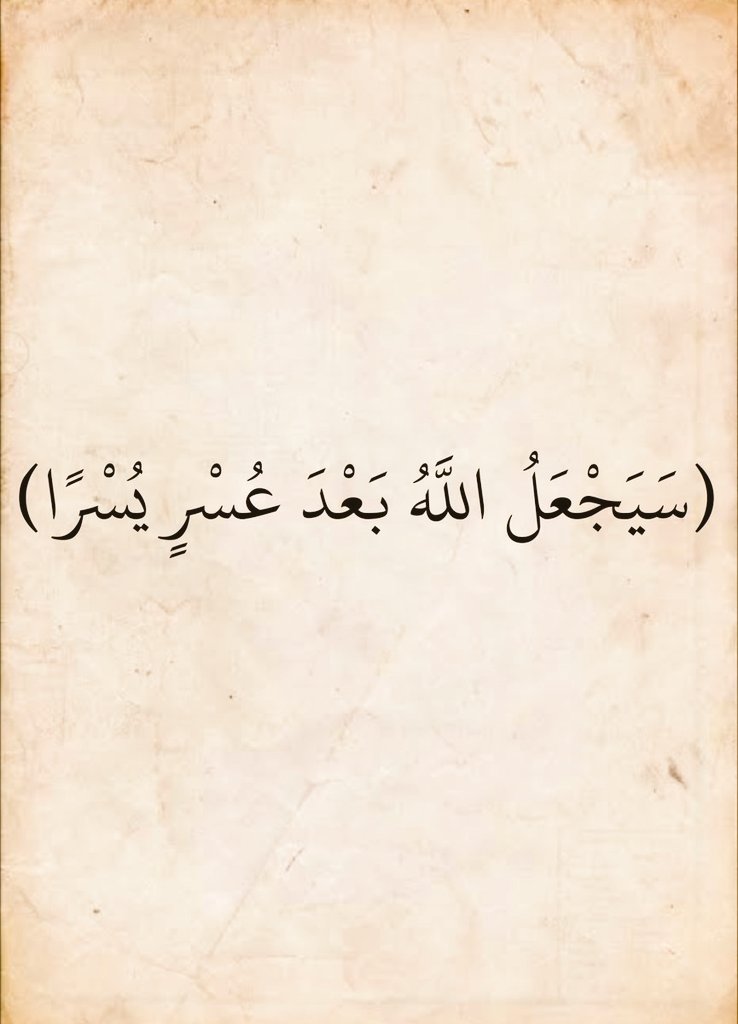 (سَيَجْعَلُ اللَّهُ بَعْدَ عُسْرٍ يُسْرًا)